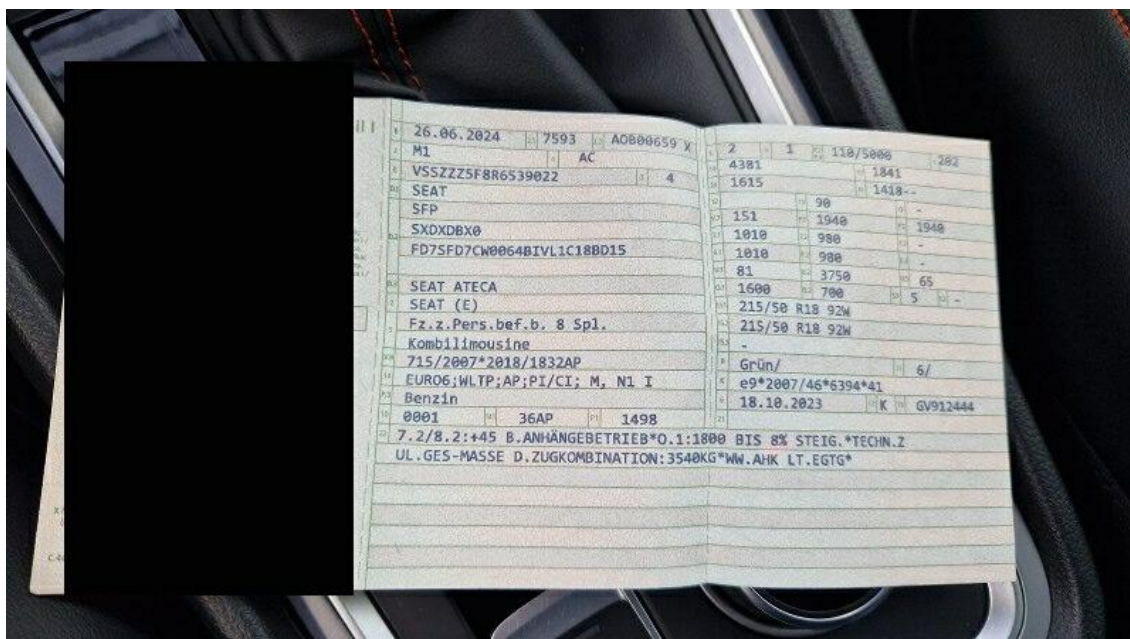 26.06.2024 7593 AOB00659 X
M1 AC
VSSZZZ5F8R6539022 4
SEAT
SFP
SXDXDBX0
FD7SFD7CW0064BIVL1C18BD15
SEAT ATECA
SEAT (E)
Fz.z.Pers.bef.b. 8 Spl.
Kombilimousine
715/2007*2018/1832AP
EURO6;WLTP;AP;PI/CI; M, N1 I
Benzin
0001 36AP 1498
2 1 110/5000 202
4381 1841
1615 1418--
90 -
151 1940 1940
1010 980 -
1010 980 -
81 3750 65
1600 700 5 -
215/50 R18 92W
215/50 R18 92W
-
Grün/ 6/
e9*2007/46*6394*41
18.10.2023 K GV912444
7.2/8.2:+45 B.ANHÄNGEBETRIEB*O.1:1800 BIS 8% STEIG.*TECHN.Z
UL.GES-MASSE D.ZUGKOMBINATION:3540KG*WW.AHK LT.EGTG*